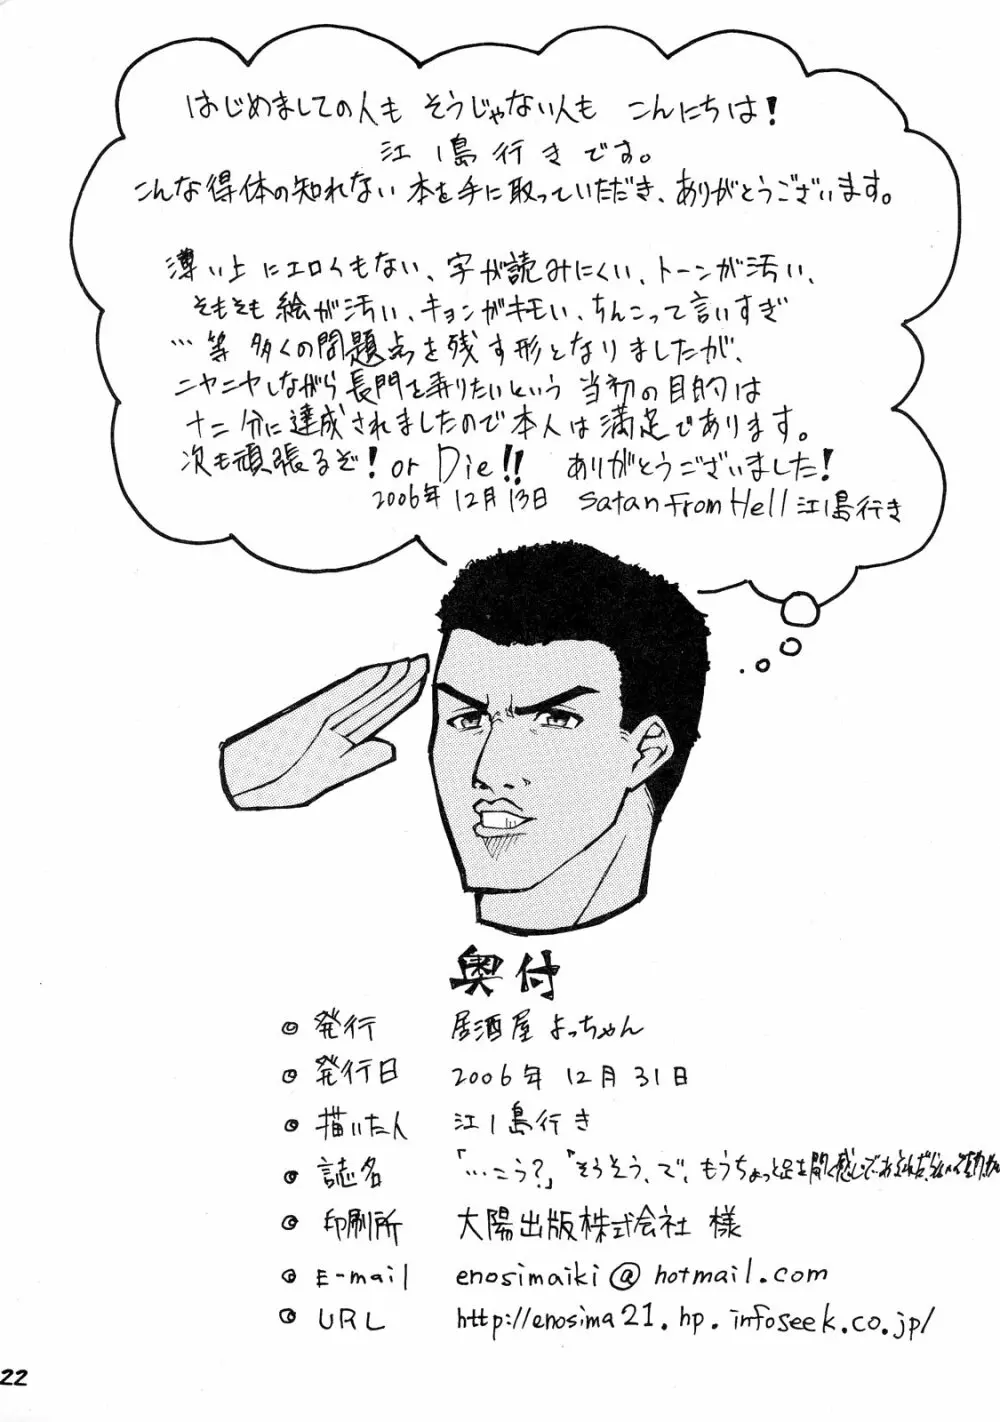 はじめましての人も そうじゃない人も こんにちは!
江ノ島行きです。
こんな得体の知れない本を手に取っていただき、ありがとうございます。
薄い上にエロくもない、字が読みにくい、トーンが汚い、
そもそも絵が汚い、キョンがキモい、ちんこって言いすぎ
…等 多くの問題点を残す形となりましたが、
ニヤニヤしながら長門を弄りたいという 当初の目的は
十二分に達成されましたので本人は満足であります。
次も頑張るぞ! or Die!! ありがとうございました!
2006年12月13日 Satan From Hell 江ノ島行き
奥付
◎ 発行 居酒屋よっちゃん
◎ 発行日 2006年12月31日
◎ 描いた人 江ノ島行き
◎ 誌名 「…こう?」「そうそう、で、もうちょっと足を開く感じで
◎ 印刷所 大陽出版株式会社 様
◎ E-mail enosimaiki@hotmail.com
◎ URL http://enosima21.hp.infoseek.co.jp/
22